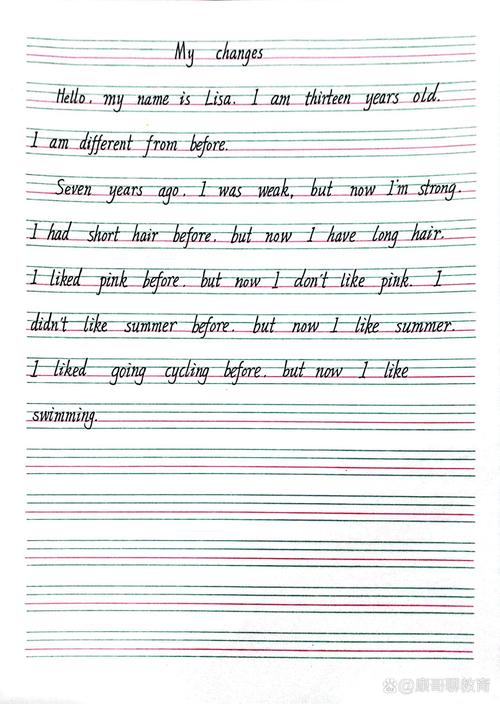 My changes
Hello, my name is Lisa. I am thirteen years old.
I am different from before.
Seven years ago, I was weak, but now I'm strong.
I had short hair before, but now I have long hair.
I liked pink before, but now I don't like pink. I
didn't like summer before, but now I like summer.
I liked going cycling before, but now I like
swimming.
@康哥聊教育